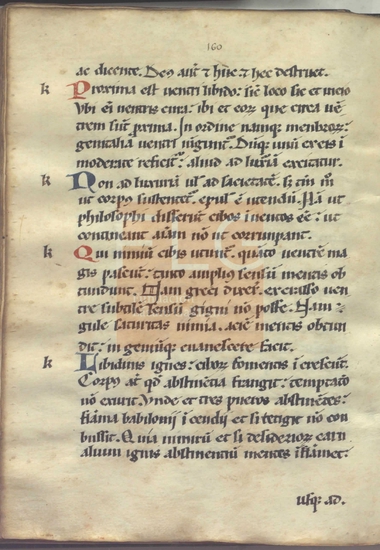 160
ac dicente. Deꝰ aut̄ ⁊ hūc ⁊ hec destruet.
k Proxima est ventri libido: sic̄ loco sic et vicio
Vbi em̄ ventris cura: ibi et eoꝝ que circa vē
trem sūt proxima. In ordine namqꝫ membroꝝ:
genitalia ventri iūgunt᷑. Dūqꝫ unū ex eis ī
moderate reficit᷑: aliud ad luxuriā excitatur.
k Non ad luxuriā ul̓ ad sacietatē. sꝫ tm̄ ut
ut corpꝰ sustentet᷑. epul̓ ē utendū. Nā ut
philosophi disserūt cibos īuentos eē: ut
contineant aīam nō ut corrumpant.
k Qui nimiū cibis utunt᷑. quāto ventrē ma
gis pascūt: tanto ampliꝰ sensū mentis ob
tundunt. Nam greci dixer̄t. ex crasso ven
tre subtilē sensū gigni nō posse. Nam
gule saturitas nimia. aciē mentis obtun
dit: ingeniūqꝫ euanescere facit.
k Libidinis ignes: ciboꝝ fomentis īcrescūt.
Corpꝰ at̄ qd̄ abstinētia frangit: temptatō
nō exurit. Vnde et tres pueros abstinētes:
flāma babilonii īcendii et si tetigit nō con
bussit. Quia nimirū et si desiderioꝝ carn
alium ignis abstinentiū mentes īflāmet:
usqꝫ ad.